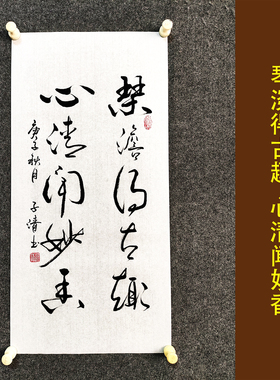 琴澹得古趣
心清闻妙香
庚子秋月 子清书
琴淡得古趣 心清闻妙香